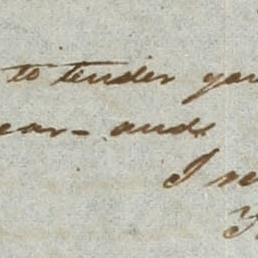 to tender you
ear - and
I re
Y